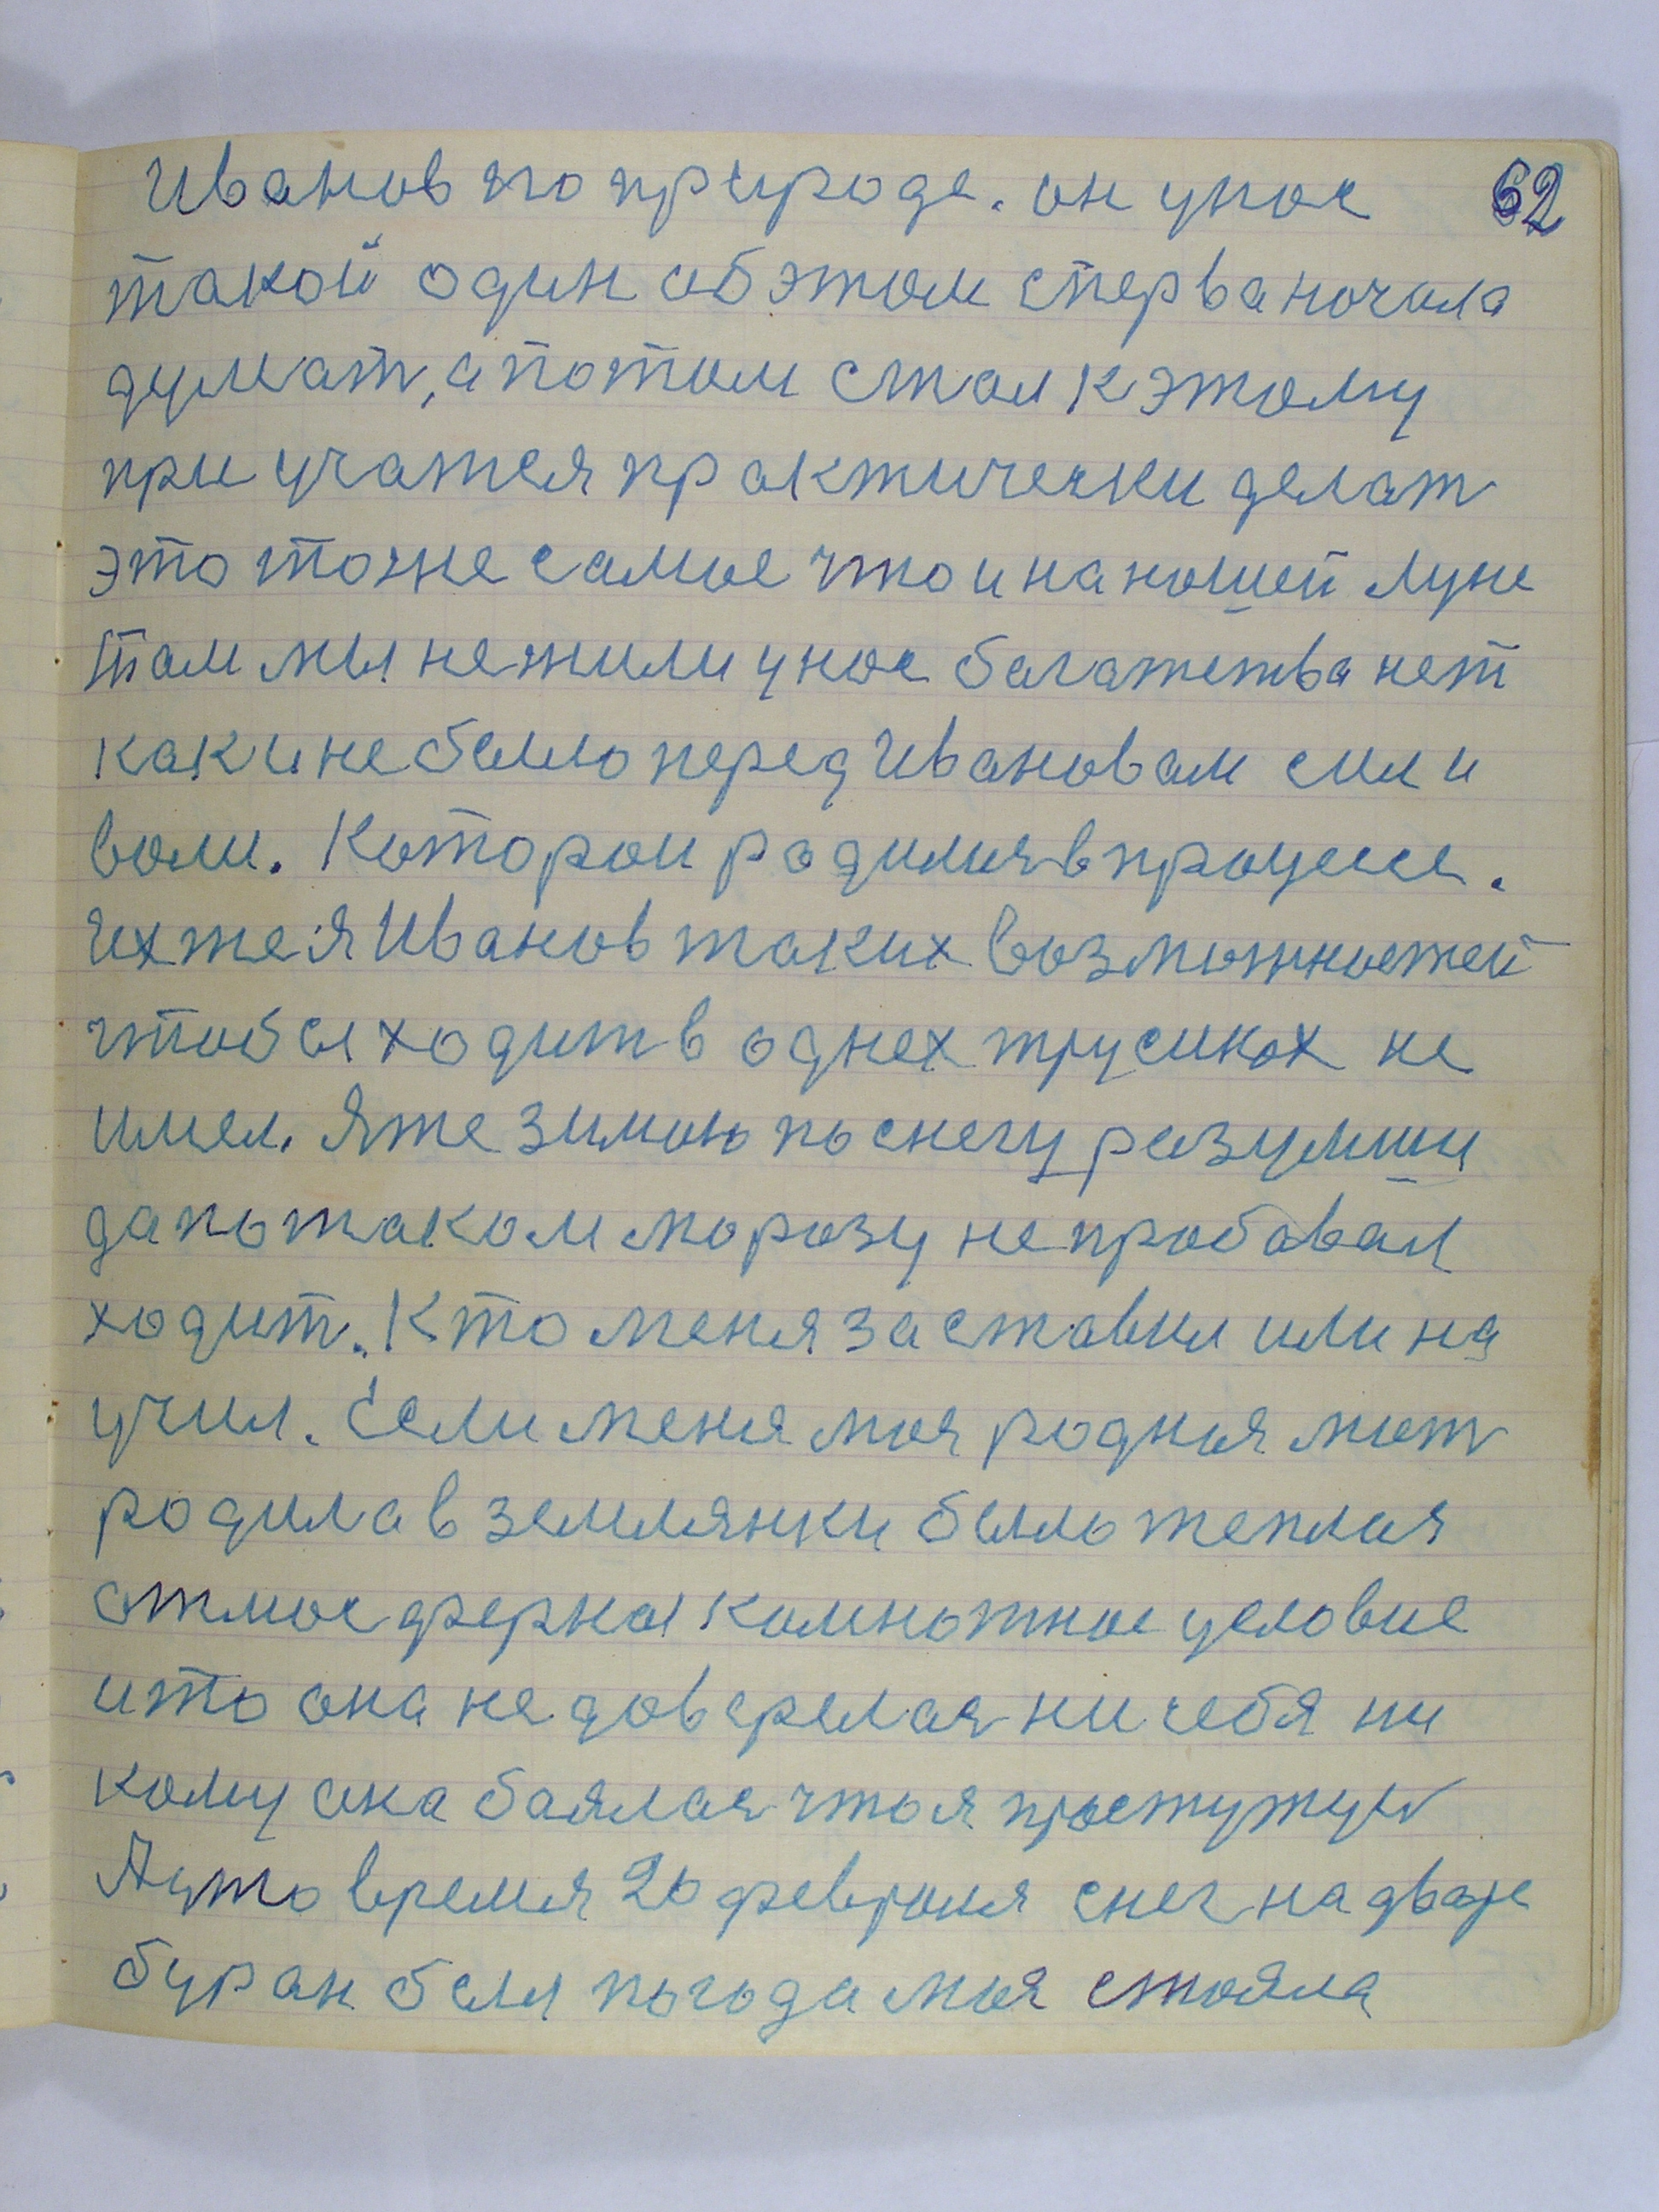 Иванов по природе. он унос 62
такой один об этом сперва начала
думат, а потом стал к этому
приучатся практически делат
это тоже самое что и на ношей луне
Там мы не жили у нос багатства нет
как и не было перед Ивановам сил и
воли. Которои родился в процесе.
Их же я Иванов таких возможностей
чтобы ходит в однех трусиках не
имел. Я же зимою по снегу разумши
да по таком морозу не пробовал
ходит. Кто меня заставил или на
учил. Если меня моя родная мат
родила в землянки было теплая
атмосферная комнотное условие
и то она не доверялая ни себя ни
кому она баялая что я простужус
А у то время 20 февраля снег на дваре
буран был погода моя стояла